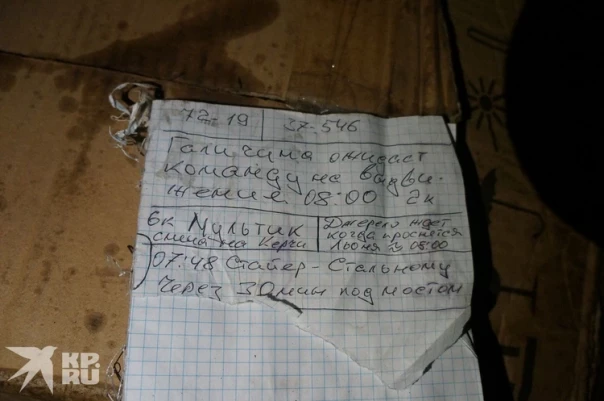 72-19 37-546
Галичина ожидает
команду на выдви-
жения 08:00 2к
6к Мультик
смена на Керчи
Джерело ждет
когда проснется
Лионя ≈ 08:00
07:48 Стайер - Стальному
Через 30 мин под мостом
KP.RU